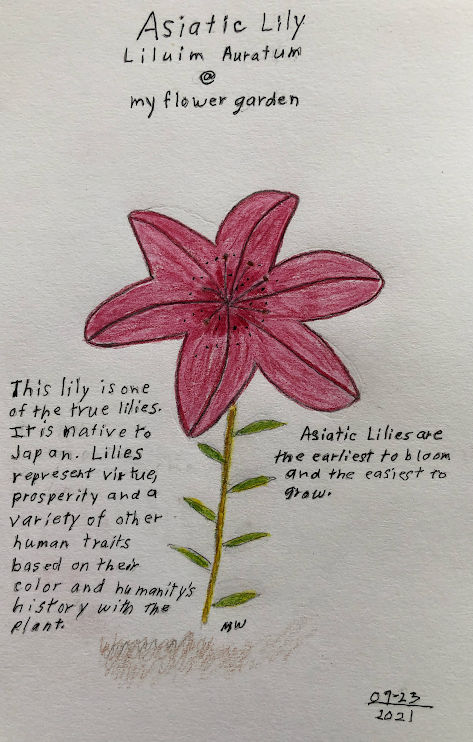 Asiatic Lily
Liluim Auratum
@
my flower garden
This lily is one
of the true lilies.
It is native to
Japan. Lilies
represent virtue,
prosperity and a
variety of other
human traits
based on their
color and humanity's
history with the
plant.
Asiatic Lilies are
the earliest to bloom
and the easiest to
grow.
MW
09-23
2021